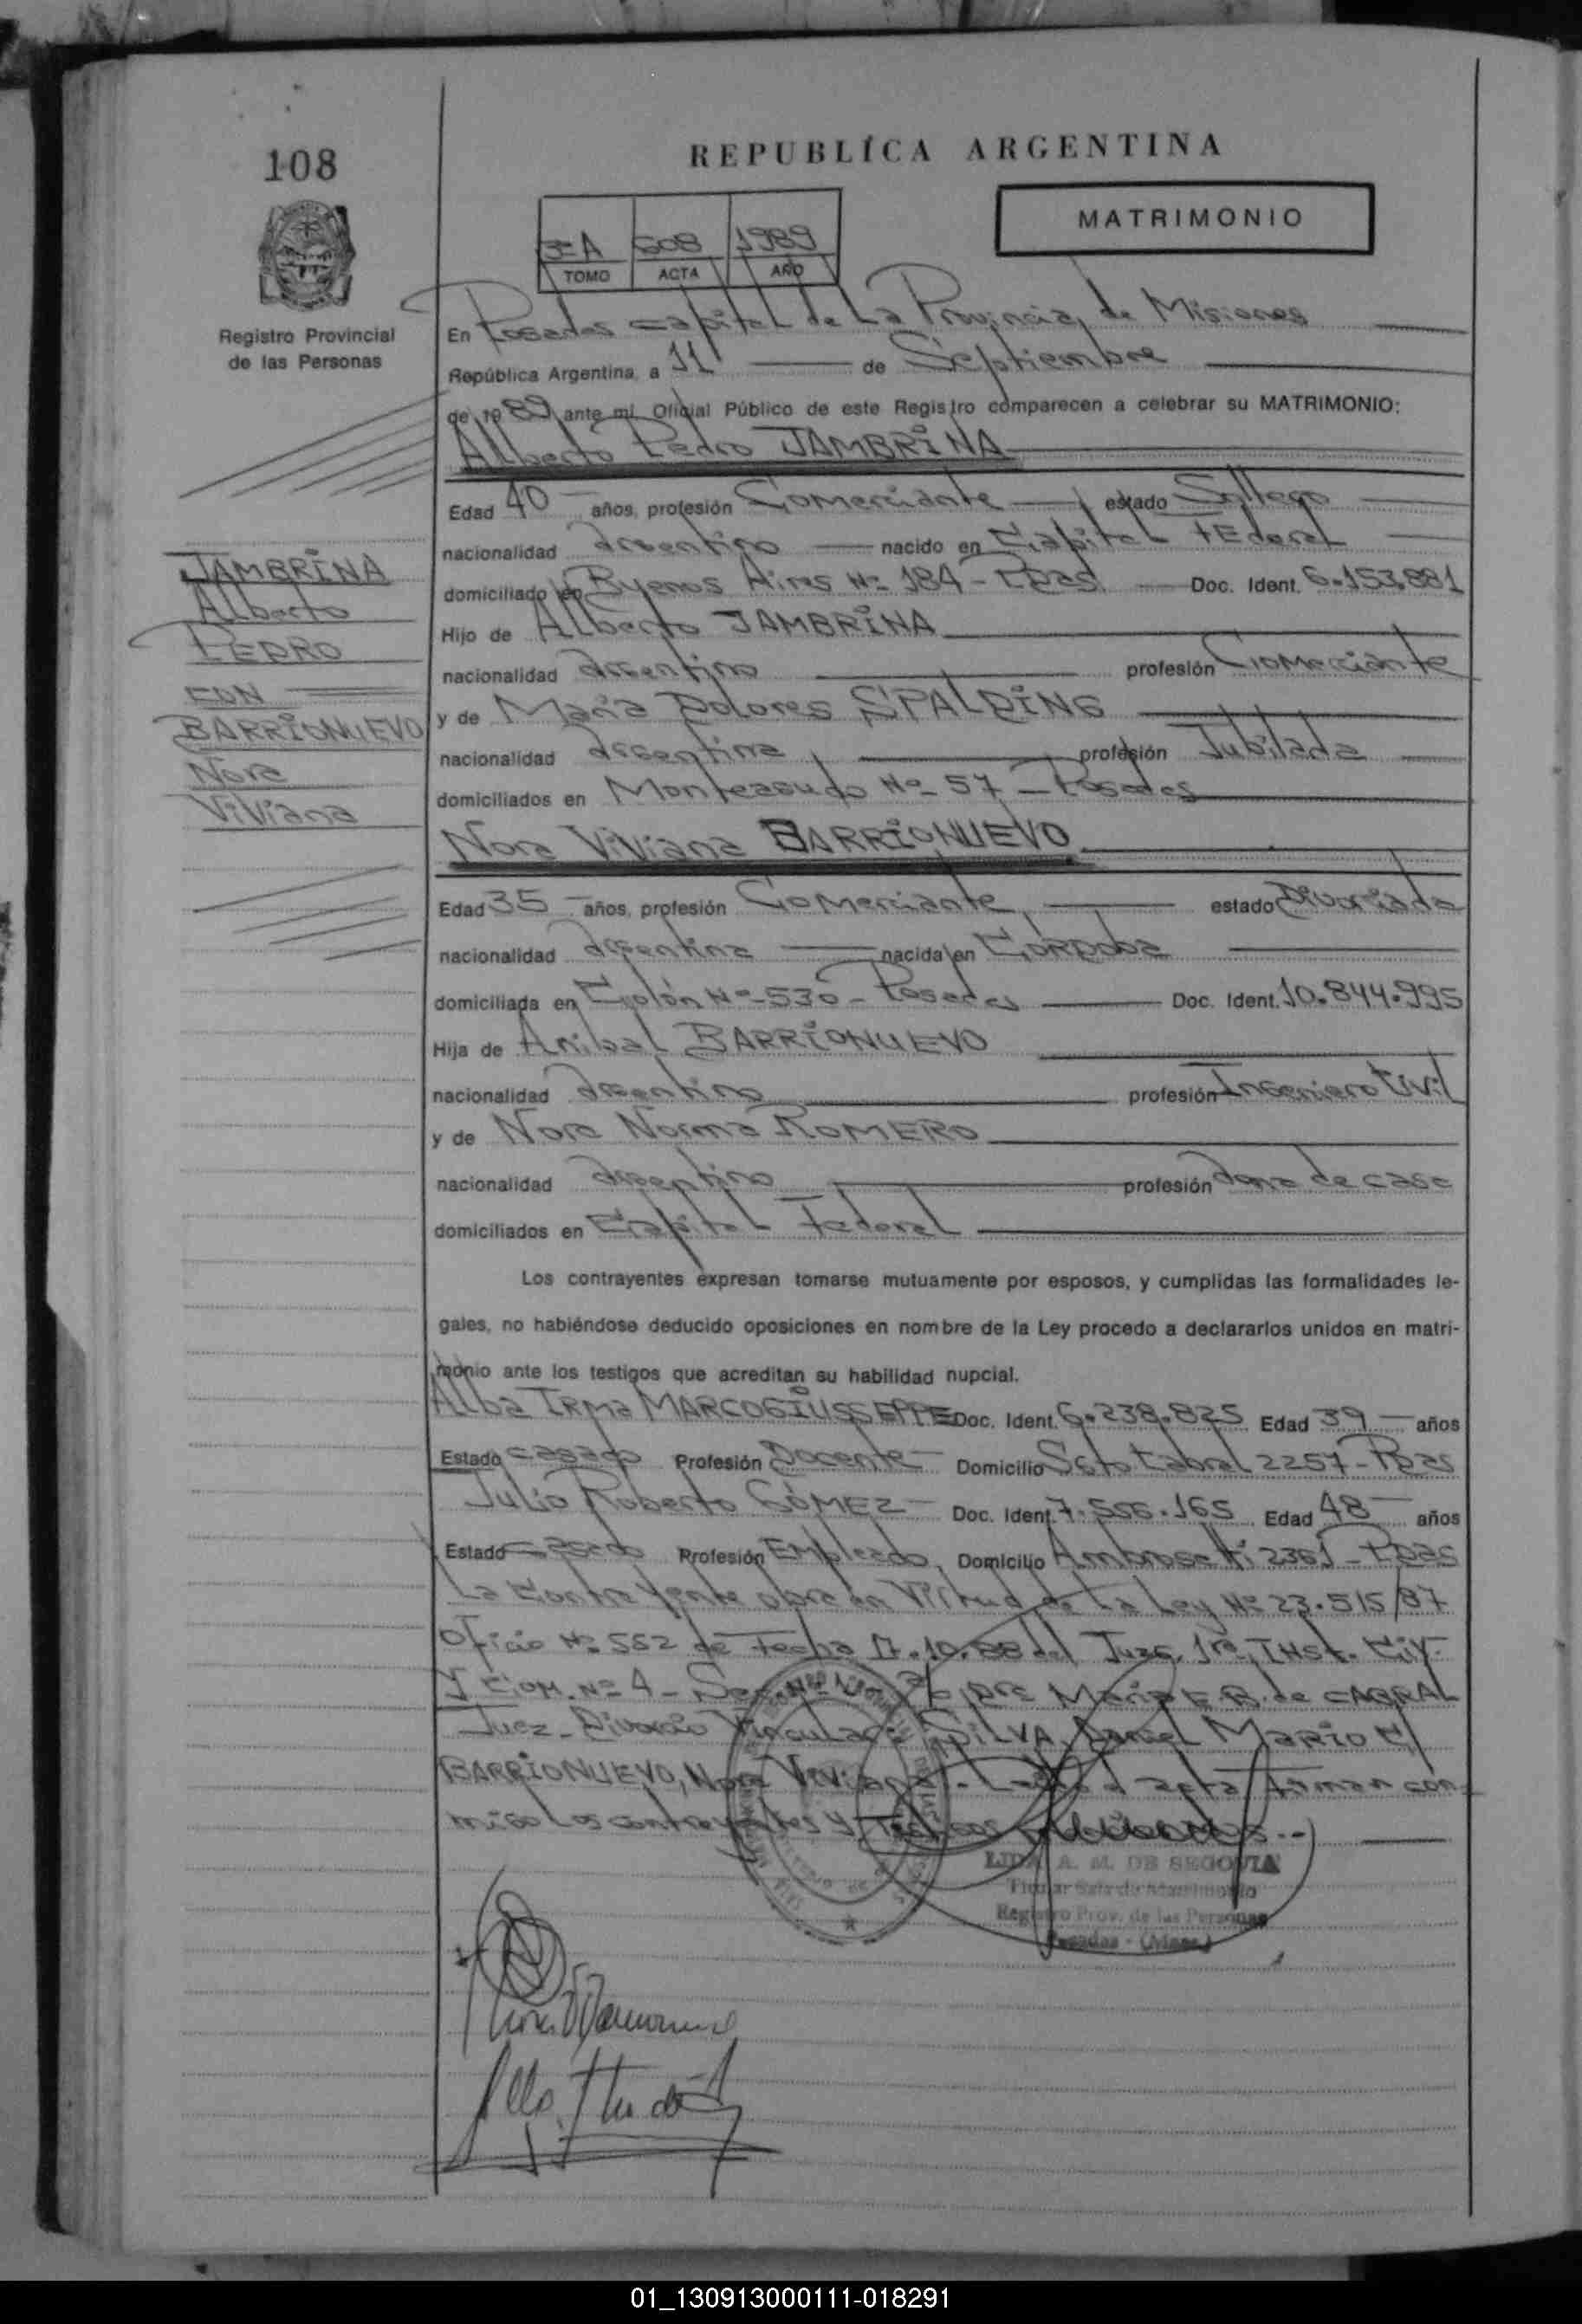 108
REPUBLÍCA ARGENTINA
MATRIMONIO
3=A 608 1989
TOMO ACTA AÑO
Registro Provincial
de las Personas
En Posadas capital de La Provincia de Misiones
República Argentina, a 11 de Septiembre
de 1989 ante mí, Oficial Público de este Registro comparecen a celebrar su MATRIMONIO:
Alberto Pedro JAMBRINA
Edad 40 años, profesión Comerciante estado Soltero
nacionalidad argentino nacido en Capital FEderal
domiciliado en Buenos Aires Nº 184 - Pdas. Doc. Ident. 6.153.881
Hijo de Alberto JAMBRINA
nacionalidad argentino profesión Comerciante
y de María Dolores SPALDING
nacionalidad argentina profesión Jubilada
domiciliados en Monteagudo Nº 57 - Posadas
JAMBRINA
Alberto
PEDRO
CON
BARRIONUEVO
Nora
Viviana
Nora Viviana BARRIONUEVO
Edad 35 años, profesión Comerciante estado Divorciada
nacionalidad argentina nacida en Córdoba
domiciliada en Colón Nº 530 - Posadas Doc. Ident. 10.844.995
Hija de Anibal BARRIONUEVO
nacionalidad argentino profesión Ingeniero Civil
y de Nora Norma ROMERO
nacionalidad argentina profesión dona de casa
domiciliados en Capital Federal
Los contrayentes expresan tomarse mutuamente por esposos, y cumplidas las formalidades le-
gales, no habiéndose deducido oposiciones en nombre de la Ley procedo a declararlos unidos en matri-
monio ante los testigos que acreditan su habilidad nupcial.
Alba IRMA MARCOGIUSSEPPE Doc. Ident. 6.238.825 Edad 39 años
Estado casado Profesión Docente Domicilio Sgto Cabral 2257 - Pdas
Julio Roberto GÓMEZ Doc. Ident. 7.556.165 Edad 48 años
Estado casado Profesión Empleado Domicilio Ambrosetti 2361 - Pdas
La Contrayente obra en Virtud de La Ley Nº 23.515/87
Oficio Nº 552 de Fecha 17.10.88 del Juzg. 1ra INst. Civ.
y Com. Nº 4 - Dra María E.B. de CABRAL
Juez - Divorcio Vincular SILVA, Daniel MARIO C/
BARRIONUEVO, Nora Viviana. - Leída el acta firman con-
migo Los contrayentes y Testigos
LIDA A. M. DE SEGOVIA
Titular Sala de Matrimonio
Registro Prov. de las Personas
Posadas - (Mnes.)
01_130913000111-018291